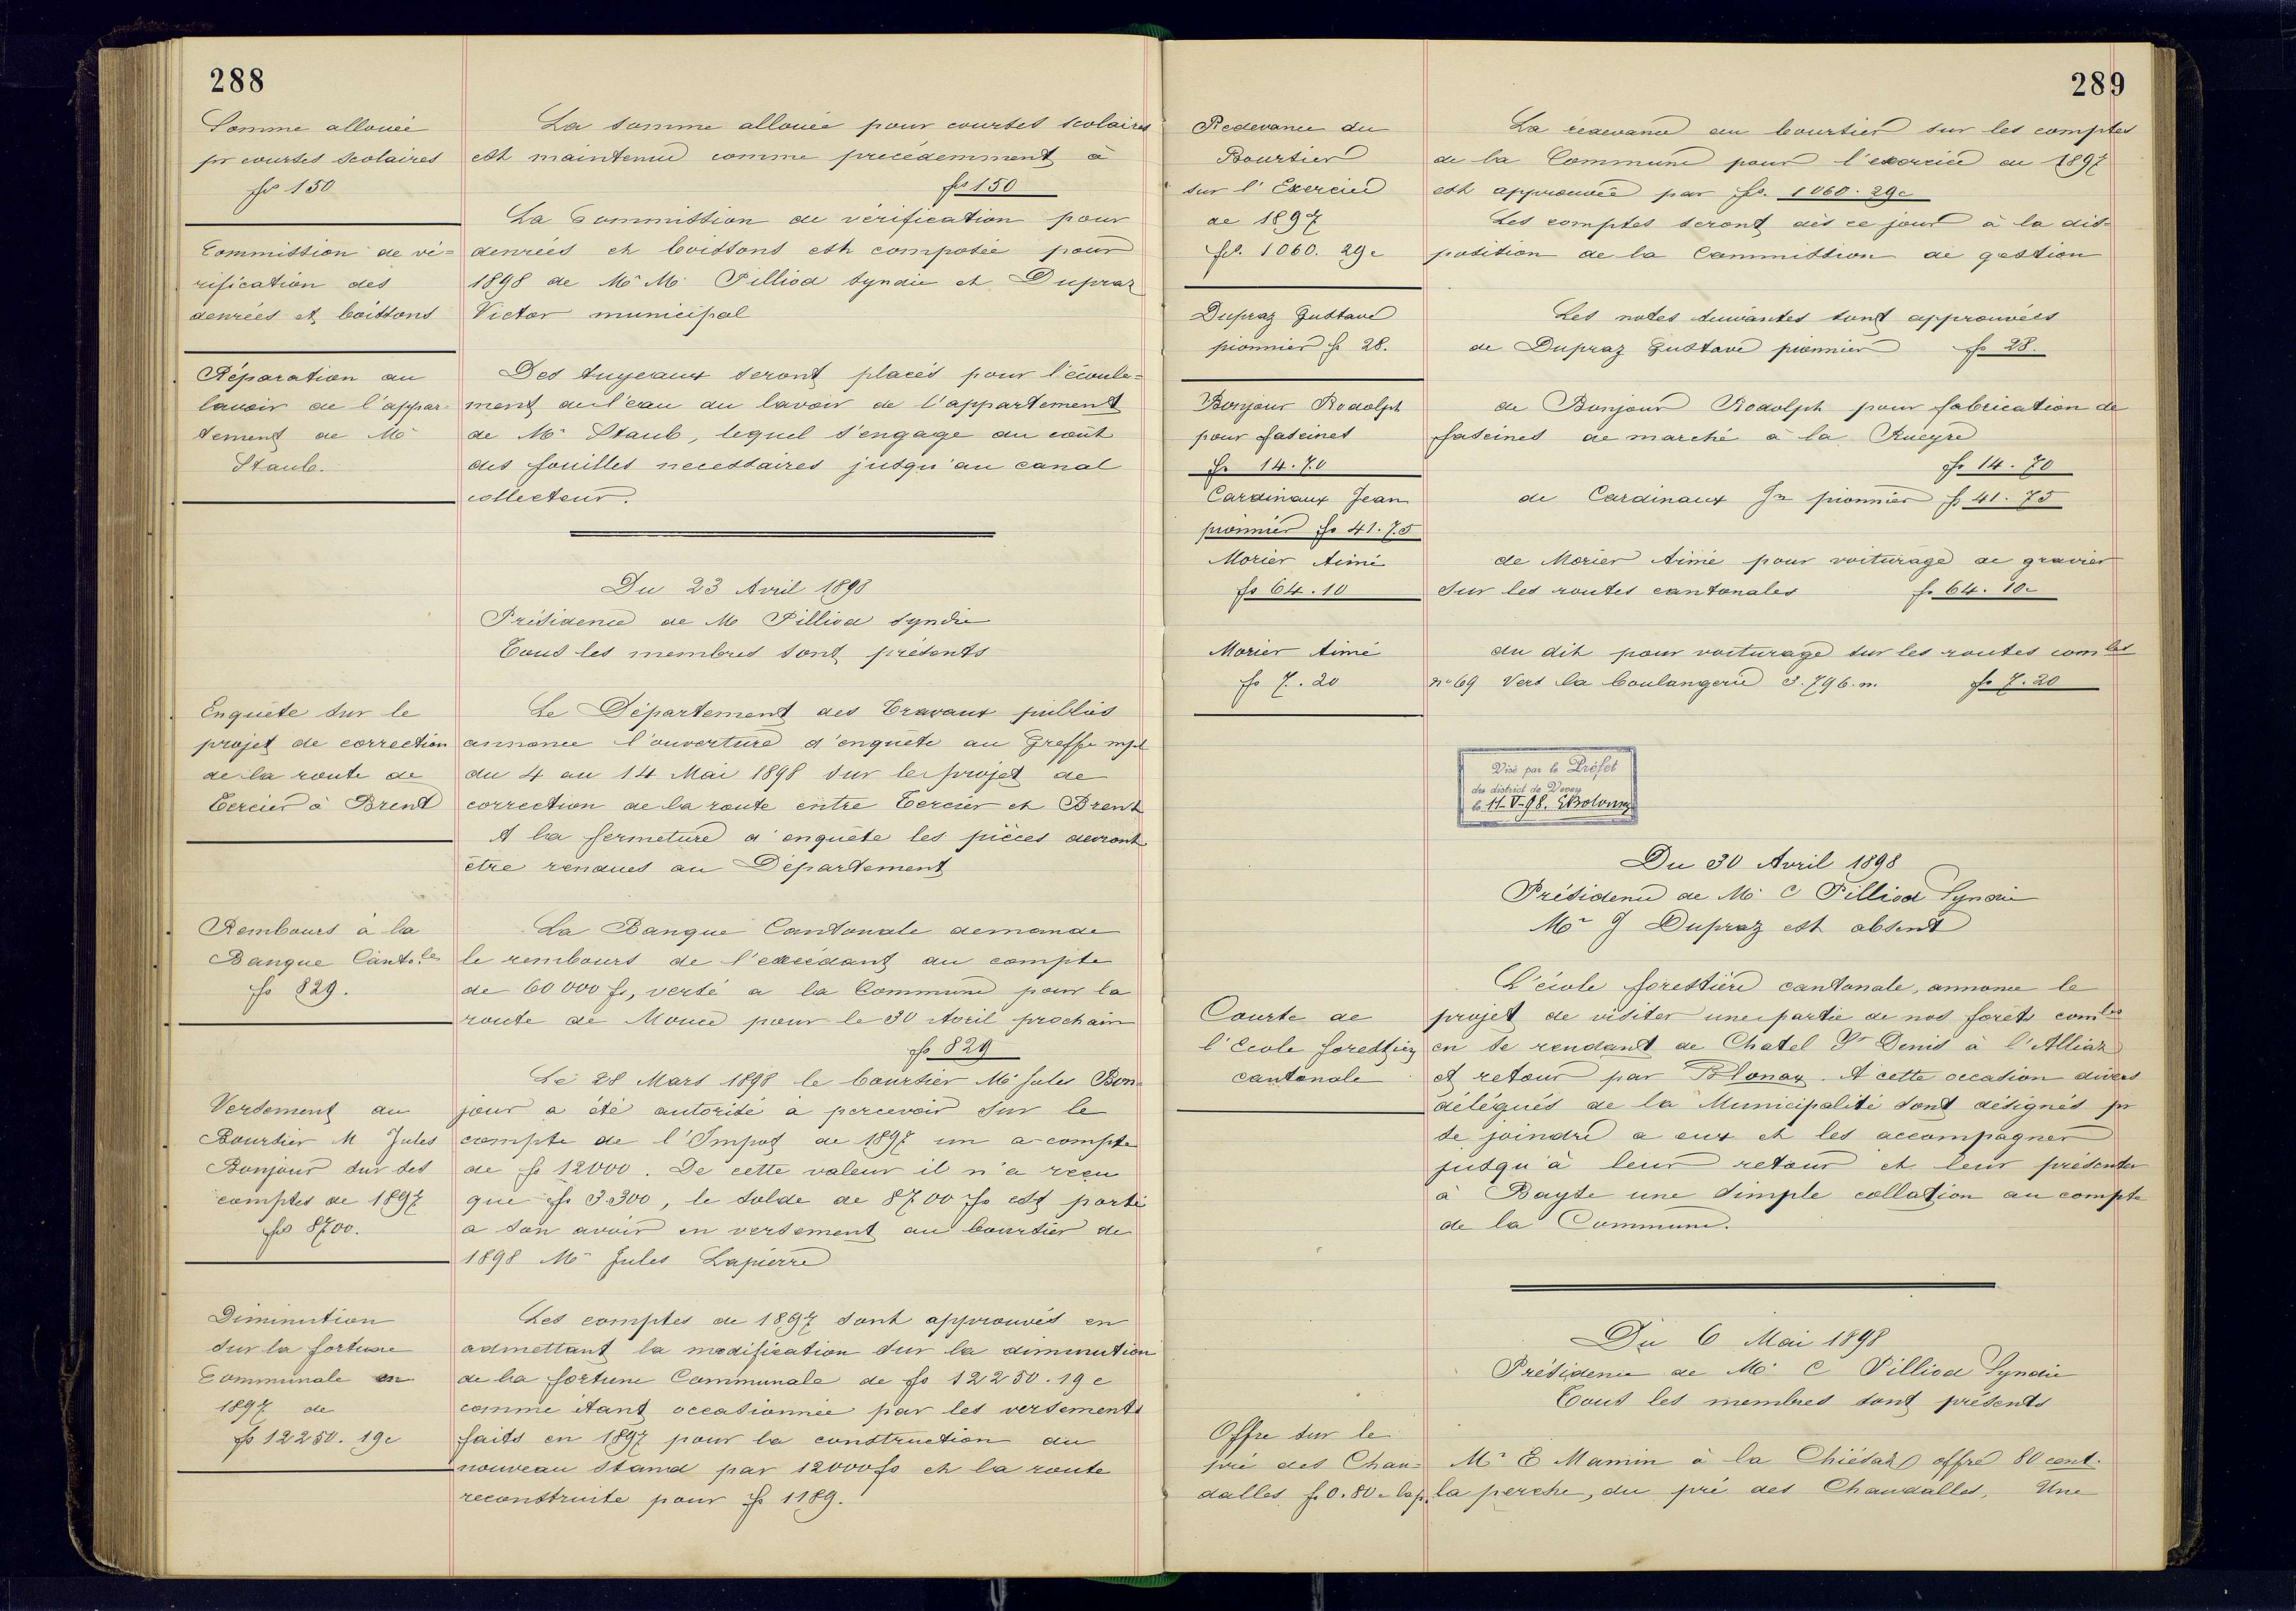 288
Somme allouée
pr courses scolaires
frs 150
La somme allouée pour courses scolaires
est maintenue comme precédemment à
frs 150
Commission de vé=
rification des
denrées et boissons
La Commission de vérification pour
denrées et boissons est composée pour
1898 de Mr M. Pilliod syndic et Dupraz
Victor municipal
Réparation au
lavoir de l'appar-
tement de Mr
Staub.
Des tuyeaux seront placés pour l'écoule=
ment de l'eau du lavoir de l'appartement
de Mr Staub, lequel s'engage au coût
des fouilles necessaires jusqu'au canal
collecteur.
Du 23 Avril 1898
Présidence de M Pilliod syndic
Tous les membres sont présents
Enquête sur le
projet de correction
de la route de
Tercier à Brent
Le Département des Travaux publics
annonce l'ouverture d'enquête au Greffe mpl
du 4 au 14 Mai 1898 sur le projet de
correction de la route entre Tercier et Brent
A la fermeture d'enquête les pièces devront
être rendues au Département
Rembours à la
Banque Canto.le
fs 829.
La Banque Cantonale demande
le rembours de l'excédant au compte
de 60000 fs, versé a la Commune pour la
route de Mouce pour le 30 Avril prochain
fs 829
Versement au
Boursier M Jules
Bonjour sur ses
comptes de 1897
frs 8700.
Le 28 Mars 1898 le boursier Mr Jules Bon=
jour a été autorisé à percevoir sur le
compte de l'Impot de 1897 un a-compte
de fs 12000. De cette valeur il n'a reçu
que fs 3300, le solde de 8700 fs est porté
a son avoir en versement au boursier de
1898 Mr Jules Lapierre
Diminution
sur la fortune
Communale en
1897 de
fs 12250.19c
Les comptes de 1897 sont approuvés en
admettant la modification sur la diminution
de la fortune Communale de fs 12250.19c
comme étant occasionnée par les versements
faits en 1897 pour la construction du
nouveau stand par 12000 fs et la route
reconstruite pour fs 1189.
289
Redevance du
Boursier
sur l'Exercice
de 1897
fs. 1060.29c
La redevance du boursier sur les comptes
de la Commune pour l'exercice de 1897
est approuvée par fs. 1060.29c
Les comptes seront dès ce jour à la dis=
position de la Commission de gestion
Dupraz Gustave
pionnier fs 28.
Les notes suivantes sont approuvées
de Dupraz Gustave pionnier fs 28.
Bonjour Rodolph
pour fascines
fs 14.70
de Bonjour Rodolph pour fabrication de
fascines de marché à la Rueyre
fs 14.70
Cardinaux Jean
pionnier fs 41.75
de Cardinaux Jn pionnier fs 41.75
Morier Aimé
fs 64.10
de Morier Aimé pour voiturage de gravier
sur les routes cantonales fs 64.10c
Morier Aimé
fs 7.20
du dit pour voiturage sur les routes comles
no 69 Vers la boulangerie 3.796.m. fs 7.20
Visé par le Préfet
du district de Vevey
le 11-V-98.
Du 30 Avril 1898
Présidence de Mr C Pilliod Syndic
Mr J Dupraz est absent
Course de
l'Ecole forestière
cantonale
L'école forestière cantonale, annonce le
projet de visiter une partie de nos forêts comles
en se rendant de Chatel St Denis à l'Alliaz
et retour par Blonay. A cette occasion divers
délégués de la Municipalité sont désignés pr
se joindre a eux et les accompagner
jusqu'à leur retour et leur présenter
à Bayse une simple collation au compte
de la Commune.
Du 6 Mai 1898
Présidence de Mr C Pilliod Syndic
Tous les membres sont présents
Offre sur le
pré des Chau=
dalles fs 0.80c la p.
Mr E Mamin à la Chiésaz offre 80 cent.
la perche, du pré des Chaudalles, Une